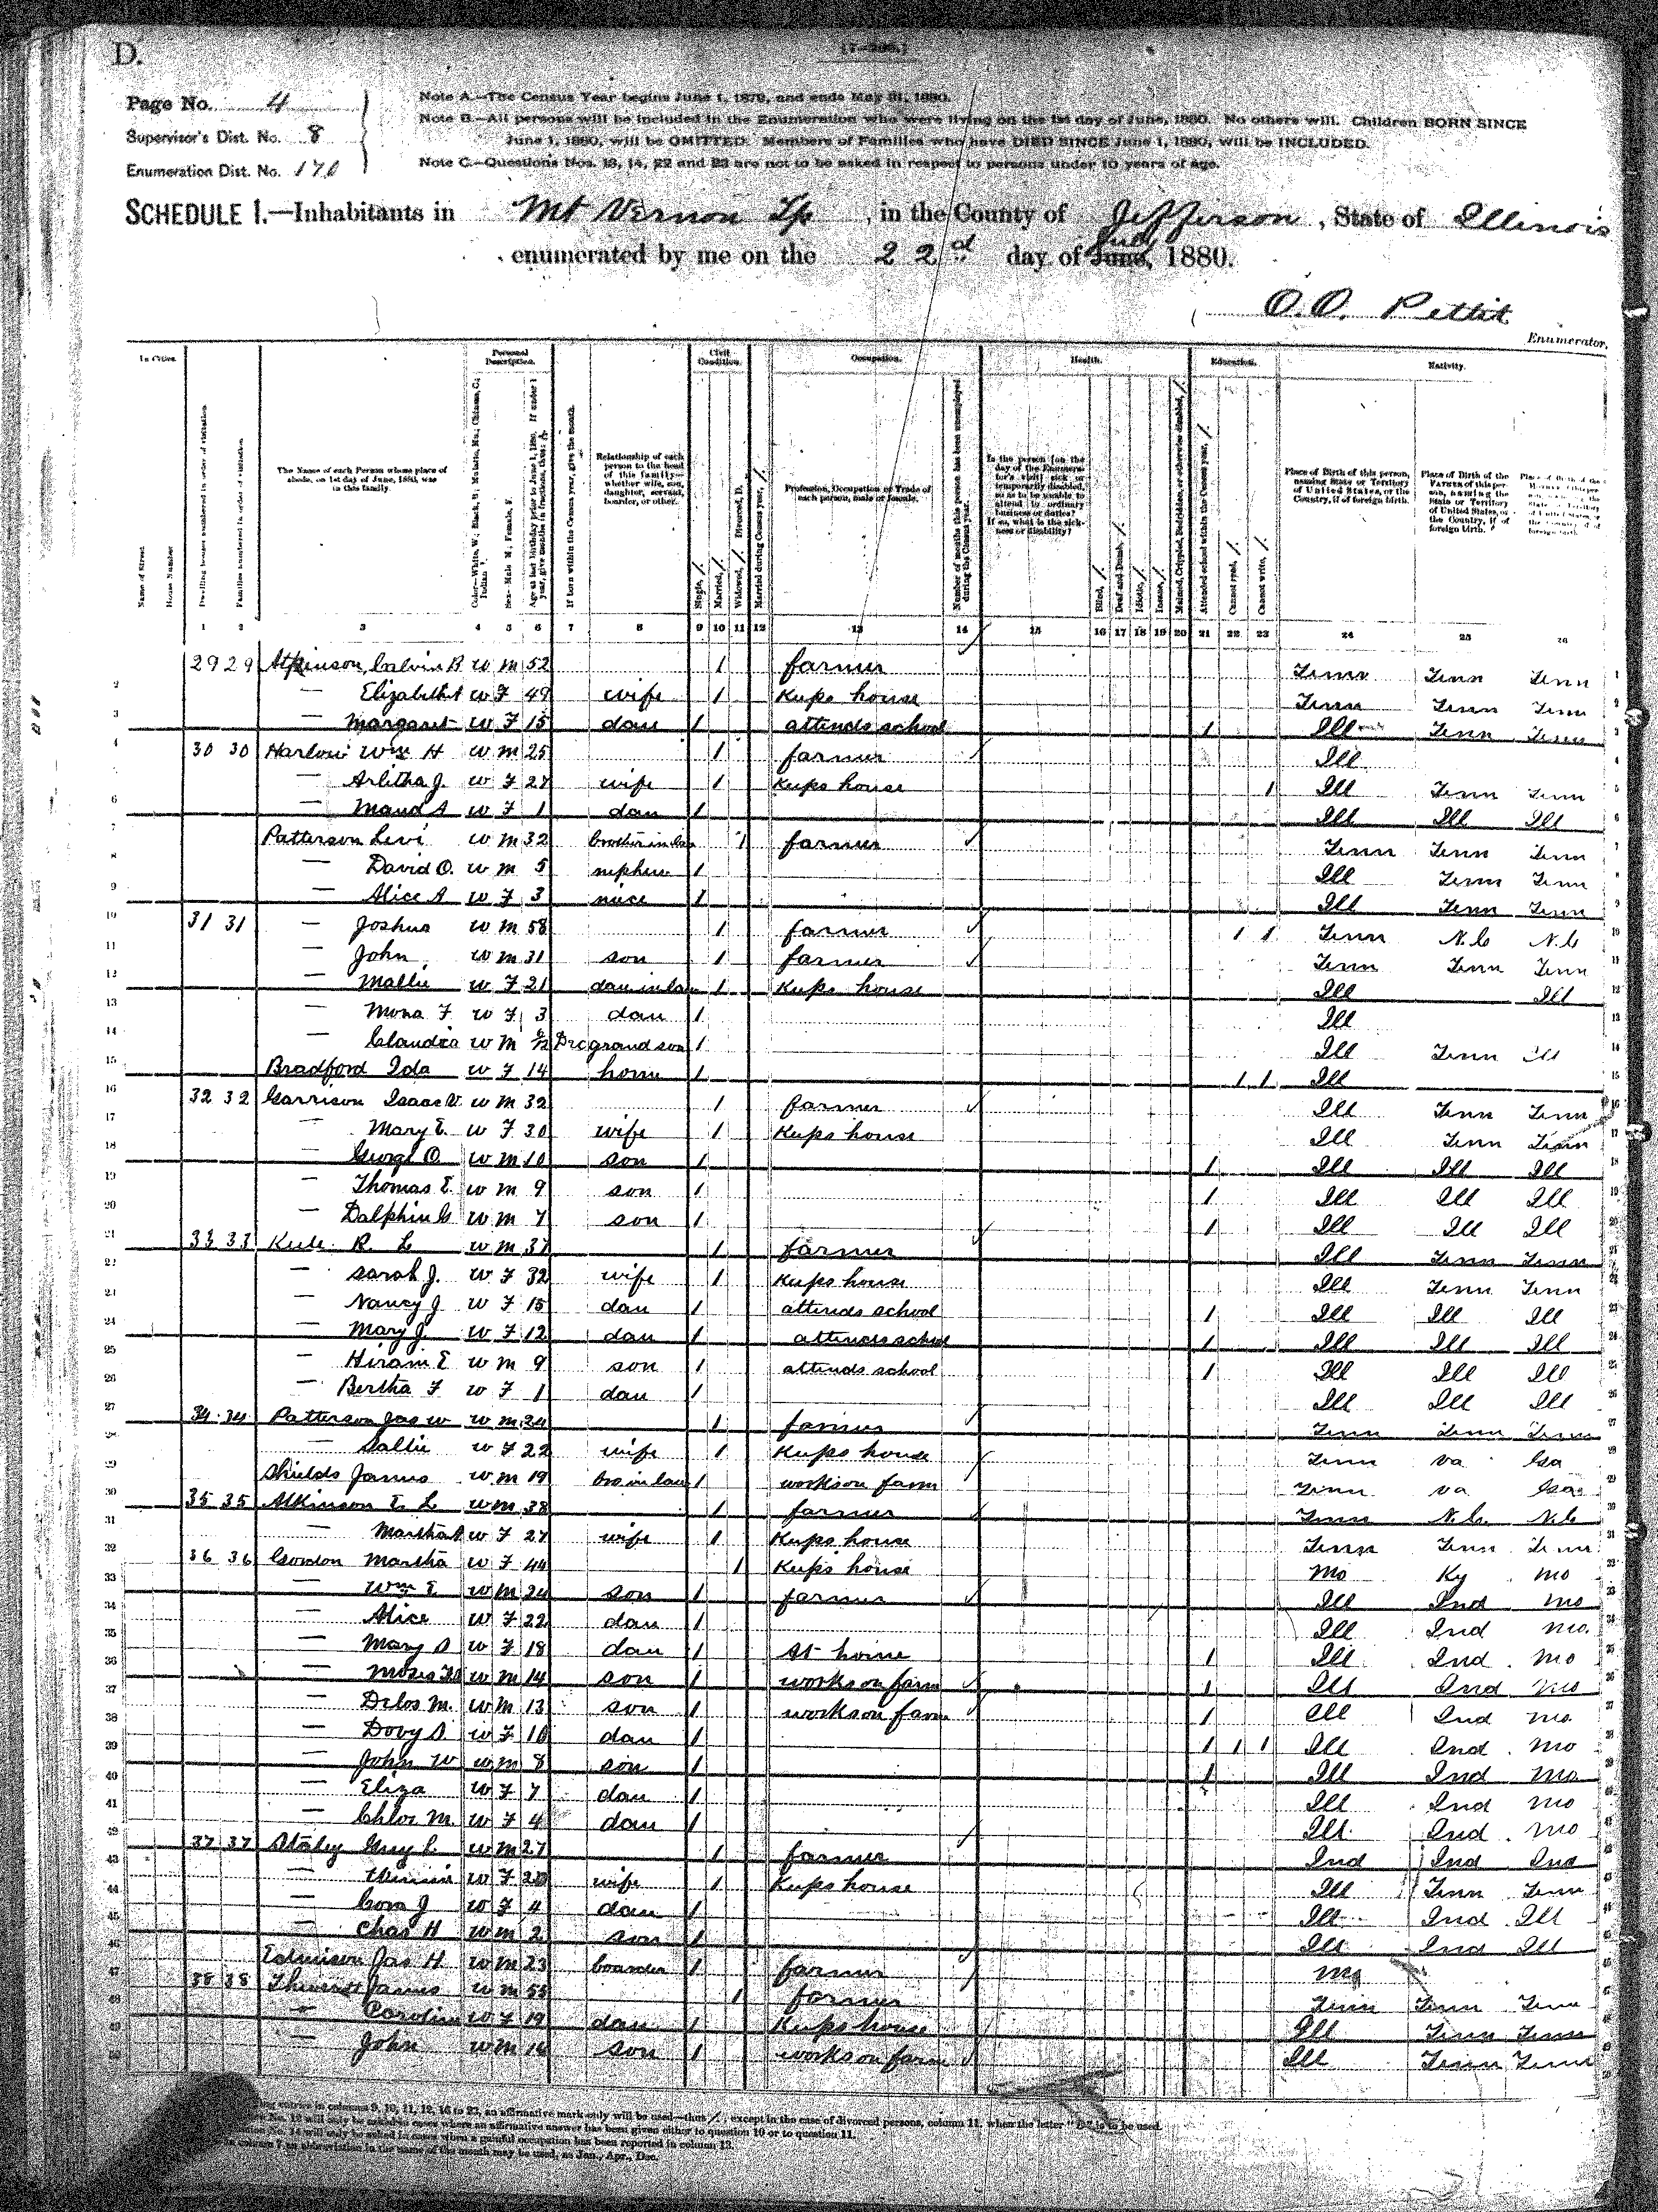 D.
[7-296.]
Page No. 4
Supervisor's Dist. No. 8
Enumeration Dist. No. 170
Note A.—The Census Year begins June 1, 1879, and ends May 31, 1880.
Note B.—All persons will be included in the Enumeration who were living on the 1st day of June, 1880. No others will. Children BORN SINCE
June 1, 1880, will be OMITTED. Members of Families who have DIED SINCE June 1, 1880, will be INCLUDED.
Note C.—Questions Nos. 13, 14, 22 and 23 are not to be asked in respect to persons under 10 years of age.
SCHEDULE 1.—Inhabitants in Mt Vernon Tp, in the County of Jefferson, State of Illinois
enumerated by me on the 22d day of June, 1880.
O.O. Pettit
Enumerator.
In Cities. Personal Description. Civil Condition. Occupation. Health. Education. Nativity.
Name of Street House Number Dwelling houses numbered in order of visitation Families numbered in order of visitation
The Name of each Person whose place of abode, on 1st day of June, 1880, was in this family.
Relationship of each person to the head of this family—whether wife, son, daughter, servant, boarder, or other.
Single, / Married, / Widowed, / Divorced, D. Married during Census year, /
Profession, Occupation or Trade of each person, male or female.
Number of months this person has been unemployed during the Census year.
Blind, / Deaf and Dumb, / Idiotic, / Insane, / Maimed, Crippled, Bedridden, or otherwise disabled, /
Attended school within the Census year, / Cannot read, / Cannot write, /
Place of Birth of this person, naming State or Territory of United States, or the Country, if of foreign birth.
Place of Birth of the FATHER of this person, naming the State or Territory of United States, or the Country, if of foreign birth.
1 2 3 4 5 6 7 8 9 10 11 12 13 14 15 16 17 18 19 20 21 22 23 24 25 26
29 29 Atkinson, Calvin R W M 52 1 farmer Tenn Tenn Tenn
2 — Elizabeth W F 49 wife 1 Keeps house Tenn Tenn Tenn
3 — Margaret W F 15 dau 1 attends school 1 Ill Tenn Tenn
4 30 30 Harlow Wm H W M 25 1 farmer Ill
— Arlitha J. W F 27 wife 1 Keeps house 1 Ill Tenn Tenn
6 — Maud A W F 1 dau 1 Ill Ill Ill
7 Patterson Levi W M 32 brother in law 1 farmer Tenn Tenn Tenn
8 — David O. W M 5 nephew 1 Ill Tenn Tenn
9 — Alice A W F 3 niece 1 Ill Tenn Tenn
10 31 31 — Joshua W M 58 1 farmer 1 1 Tenn N.C N.C
11 — John W M 31 son 1 farmer Tenn Tenn Tenn
12 — Mollie W F 21 dau in law 1 Keeps house Ill Ill
13 — Mona F W F 3 dau 1 Ill
14 — W M Dec grand son 1 Ill Tenn Ill
15 Bradford Ida W F 14 home 1 1 1 Ill
16 32 32 Garrison Isaac V. W M 32 1 farmer Ill Tenn Tenn
17 — Mary E. W F 30 wife 1 Keeps house Ill Tenn Tenn
18 — George O W M 10 son 1 1 Ill Ill Ill
19 — Thomas E. W M 9 son 1 1 Ill Ill Ill
20 — Dalphin G W M 7 son 1 1 Ill Ill Ill
21 33 33 R. L W M 37 1 farmer Ill Tenn Tenn
22 — Sarah J. W F 32 wife 1 Keeps house Ill Tenn Tenn
23 — Nancy J W F 15 dau 1 attends school 1 Ill Ill Ill
24 — Mary J. W F 12 dau 1 attends school 1 Ill Ill Ill
25 — Hiram E W M 9 son 1 attends school 1 Ill Ill Ill
26 — Bertha F W F 1 dau 1 Ill Ill Ill
27 34 34 Patterson Jas W W M 24 1 farmer Tenn Tenn Tenn
28 — Sallie W F 22 wife 1 Keeps house Tenn Va Ga
29 Shields James W M 19 bro in law 1 works on farm Tenn Va Ga
30 35 35 Atkinson E. L W M 38 1 farmer Tenn N.C. N.C
31 — Martha W F 27 wife 1 Keeps house Tenn Tenn Tenn
32 36 36 Gordon Martha W F 44 1 Keeps house Mo Ky Mo
33 — Wm E. W M 24 son 1 farmer Ill Ind Mo
34 — Alice W F 22 dau 1 Ill Ind Mo.
35 — Mary W F 18 dau 1 At home 1 Ill Ind Mo
36 — Moses W M 14 son 1 works on farm 1 Ill Ind Mo
37 — Delos M. W M 13 son 1 works on farm 1 Ill Ind Mo
38 — Dovy W F 10 dau 1 1 1 1 Ill Ind Mo
39 — John W W M 8 son 1 1 Ill Ind Mo
40 — Eliza W F 7 dau 1 Ill Ind Mo
41 — Chloe M. W F 4 dau 1 Ill Ind Mo
42 37 37 Guy L. W M 27 1 farmer Ind Ind Ind
43 — W F wife 1 Keeps house Ill Tenn Tenn
44 — Cora J W F 4 dau 1 Ill Ind Ill
45 — Chas H W M 2 son 1 Ill Ind Ill
46 Edmison Jas H W M 23 boarder 1 farmer Mo
47 38 38 James W M 55 1 farmer Tenn Tenn Tenn
48 Caroline W F 19 dau 1 Keeps house Ill Tenn Tenn
49 — John W M son 1 works on farm Ill Tenn Tenn